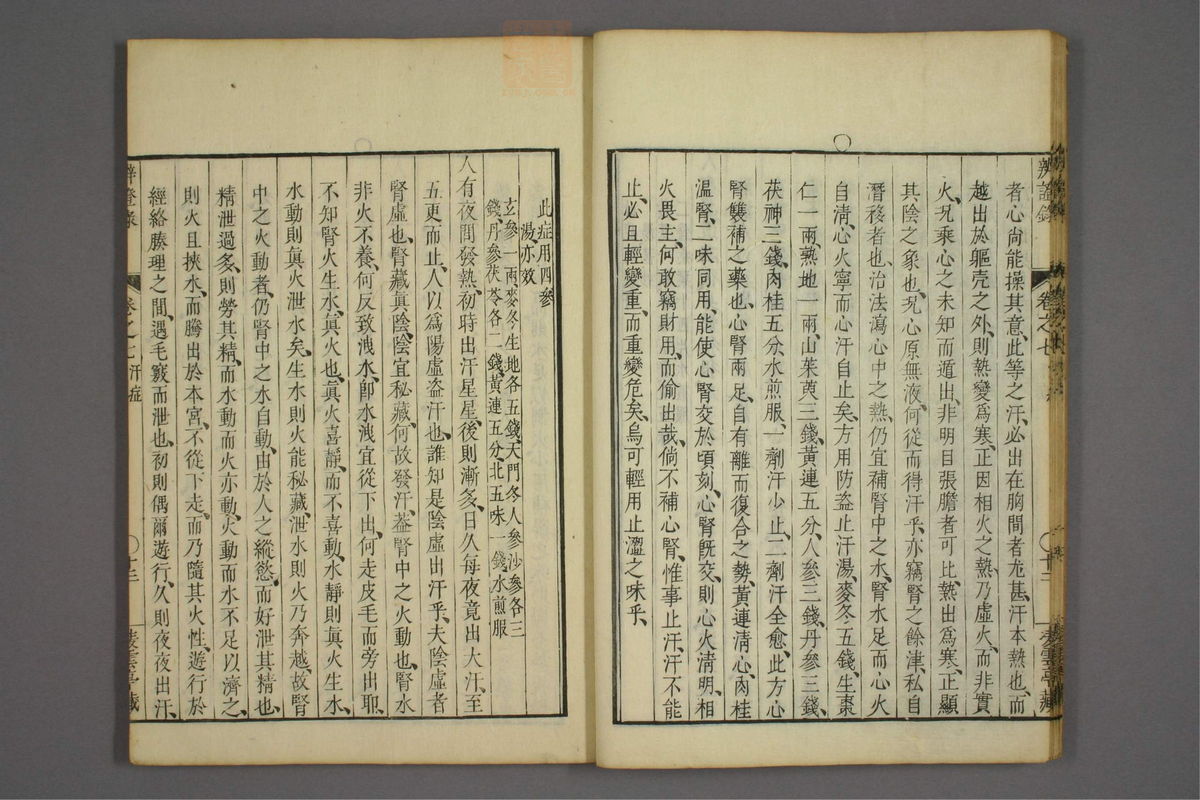 辨證錄 卷之七 十三 凌雲亭藏
者心尚能操其意此等之汗必出在胸間者尤甚汗本熱也而
越出於軀壳之外則熱變爲寒正因相火之熱乃虛火而非實
火况乘心之未知而遁出非明目張膽者可比熱出爲寒正顯
其陰之象也况心原無液何從而得汗乎亦竊腎之餘津私自
潛移者也治法瀉心中之熱仍宜補腎中之水腎水足而心火
自淸心火寧而心汗自止矣方用防盜止汗湯麥冬五錢生棗
仁一兩熟地一兩山茱萸三錢黃連五分人參三錢丹參三錢
茯神三錢肉桂五分水煎服一劑汗少止二劑汗全愈此方心
腎雙補之藥也心腎兩足自有離而復合之勢黃連淸心肉桂
溫腎二味同用能使心腎交於頃刻心腎旣交則心火淸明相
火畏主何敢竊財用而偷出哉倘不補心腎惟事止汗汗不能
止必且輕變重而重變危矣烏可輕用止澀之味乎
此症用四參湯亦效
玄參一兩麥冬生地各五錢天門冬人參沙參各三
錢丹參茯苓各二錢黃連五分北五味一錢水煎服
人有夜間發熱初時出汗星星後則漸多日久每夜竟出大汗至
五更而止人以爲陽虛盜汗也誰知是陰虛出汗乎夫陰虛者
腎虛也腎藏眞陰陰宜秘藏何故發汗葢腎中之火動也腎水
非火不養何反致洩水卽水洩宜從下出何走皮毛而旁出耶
不知腎火生水眞火也眞火喜靜而不喜動水靜則眞火生水
水動則眞火泄水矣生水則火能秘藏泄水則火乃奔越故腎
中之火動者仍腎中之水自動由於人之縱慾而好泄其精也
精泄過多則勞其精而水動而火亦動火動而水不足以濟之
則火且挾水而騰出於本宮不從下走而乃隨其火性遊行於
經絡腠理之間遇毛竅而泄也初則偶爾遊行久則夜夜出汗
辨證錄 卷之七汗症 十三 凌雲亭藏